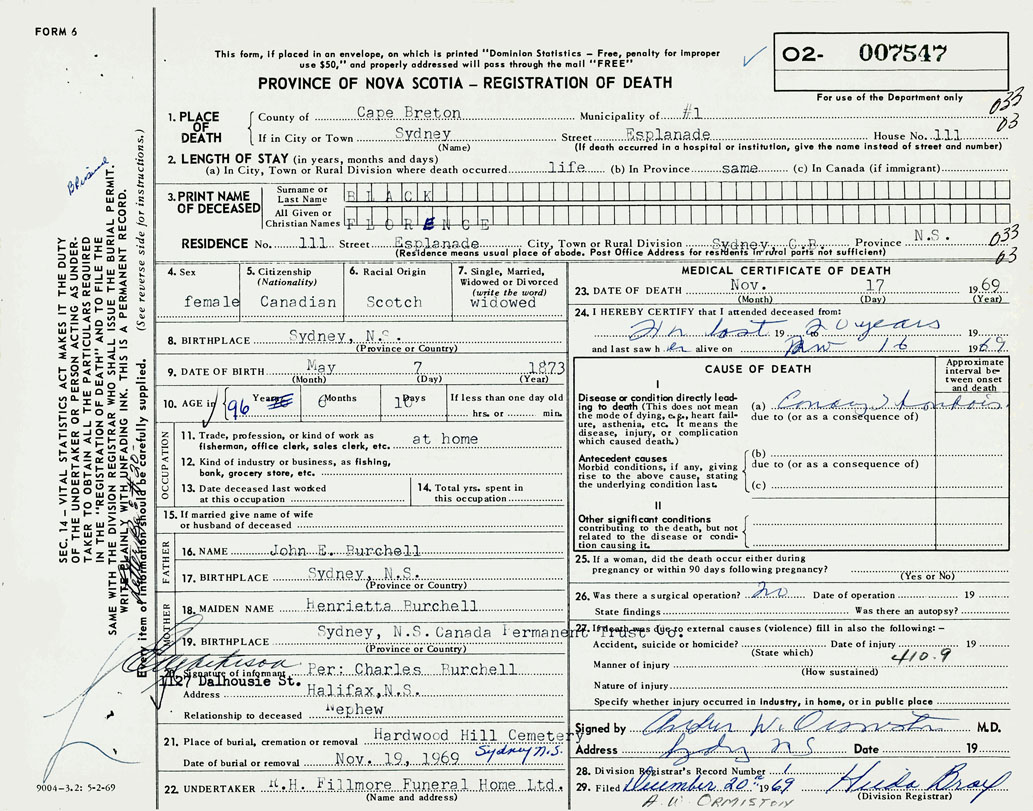 FORM 6
This form, if placed in an envelope, on which is printed "Dominion Statistics – Free, penalty for improper
use $50," and properly addressed will pass through the mail "FREE"
O2- 007547
For use of the Department only
PROVINCE OF NOVA SCOTIA – REGISTRATION OF DEATH
033
03
1. PLACE OF DEATH
County of Cape Breton Municipality of #1
If in City or Town Sydney Street Esplanade House No. 111
(Name) (If death occurred in a hospital or institution, give the name instead of street and number)
2. LENGTH OF STAY (in years, months and days)
(a) In City, Town or Rural Division where death occurred life (b) In Province same (c) In Canada (if immigrant)
3. PRINT NAME OF DECEASED
Surname or Last Name BLACK
All Given or Christian Names FLORENCE
RESIDENCE No. 111 Street Esplanade City, Town or Rural Division Sydney, C.B. Province N.S.
(Residence means usual place of abode. Post Office Address for residents in rural parts not sufficient)
033
03
4. Sex
female
5. Citizenship
(Nationality)
Canadian
6. Racial Origin
Scotch
7. Single, Married,
Widowed or Divorced
(write the word)
widowed
8. BIRTHPLACE Sydney, N.S.
(Province or Country)
9. DATE OF BIRTH May 7 1873
(Month) (Day) (Year)
10. AGE in 96 Years 6 Months 10 Days If less than one day old
hrs. or min.
OCCUPATION
11. Trade, profession, or kind of work as
fisherman, office clerk, sales clerk, etc. at home
12. Kind of industry or business, as fishing,
bank, grocery store, etc.
13. Date deceased last worked
at this occupation
14. Total yrs. spent in
this occupation
15. If married give name of wife
or husband of deceased
FATHER
16. NAME John E. Burchell
17. BIRTHPLACE Sydney, N.S.
(Province or Country)
MOTHER
18. MAIDEN NAME Henrietta Burchell
19. BIRTHPLACE Sydney, N.S.
(Province or Country)
Canada Permanent Trust Co.
20. Signature of informant Per: Charles Burchell
1127 Dalhousie St.
Address Halifax, N.S.
Relationship to deceased Nephew
21. Place of burial, cremation or removal Hardwood Hill Cemetery
Sydney N.S.
Date of burial or removal Nov. 19, 1969
22. UNDERTAKER R.H. Fillmore Funeral Home Ltd.
(Name and address)
MEDICAL CERTIFICATE OF DEATH
23. DATE OF DEATH Nov. 17 1969
(Month) (Day) (Year)
24. I HEREBY CERTIFY that I attended deceased from:
last 19 to 20 years 19
and last saw her alive on Nov 16 1969
CAUSE OF DEATH
Approximate
interval be-
tween onset
and death
I
Disease or condition directly lead-
ing to death (This does not mean
the mode of dying, e.g., heart fail-
ure, asthenia, etc. It means the
disease, injury, or complication
which caused death.)
(a) Coronary Thrombosis
due to (or as a consequence of)
Antecedent causes
Morbid conditions, if any, giving
rise to the above cause, stating
the underlying condition last.
(b)
due to (or as a consequence of)
(c)
II
Other significant conditions
contributing to the death, but not
related to the disease or condi-
tion causing it.
25. If a woman, did the death occur either during
pregnancy or within 90 days following pregnancy?
(Yes or No)
26. Was there a surgical operation? no Date of operation 19
State findings Was there an autopsy?
27. If death was due to external causes (violence) fill in also the following:–
Accident, suicide or homicide? Date of injury 19
(State which) 410.9
Manner of injury
(How sustained)
Nature of injury
Specify whether injury occurred in Industry, in home, or in public place
Signed by Arthur W. Ormiston M.D.
Address Sydney NS Date 19
28. Division Registrar's Record Number
29. Filed December 20th 1969 Hilda Bray
(Division Registrar)
A. W. ORMISTON
SEC. 14 – VITAL STATISTICS ACT MAKES IT THE DUTY
OF THE UNDERTAKER OR PERSON ACTING AS UNDER-
TAKER TO OBTAIN ALL THE PARTICULARS REQUIRED
IN THE "REGISTRATION OF DEATH" AND TO FILE THE
SAME WITH THE DIVISION REGISTRAR WHO SHALL ISSUE THE BURIAL PERMIT.
WRITE PLAINLY WITH UNFADING INK. THIS IS A PERMANENT RECORD.
Every item of information should be carefully supplied. (See reverse side for instructions.)
9004-3.2: 5-2-69